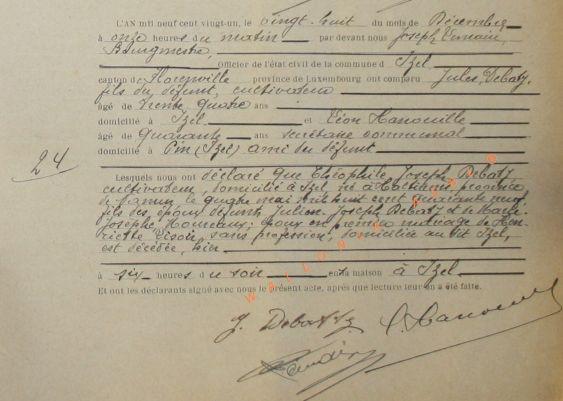 L'AN mil neuf cent vingt-un, le vingt-huit du mois de Décembre
à onze heures du matin par devant nous Joseph
Bourgmestre
Officier de l'état civil de la commune d' Izel
canton de Florenville province de Luxembourg ont comparu Jules Debatz,
fils du défunt, cultivateur
âgé de trente quatre ans
domicilié à Izel et Léon Hanouille
âgé de quarante ans secrétaire communal
domicilié à Pin (Izel) ami du défunt
24
Lesquels nous ont déclaré que Théophile Joseph Debatz
cultivateur, domicilié à Izel, né à province
de Namur, le quatre mai mil huit cent quarante neuf
fils des époux défunts Julien Joseph Debatz et de Marie
Josèphe époux en premier mariage de Hen-
riette sans profession, domiciliée au dit Izel,
est décédé, hier
à six heures du soir en sa maison à Izel
Et ont les déclarants signé avec nous le présent acte, après que lecture leur en a été faite.
J. Debatz L. Hanouille